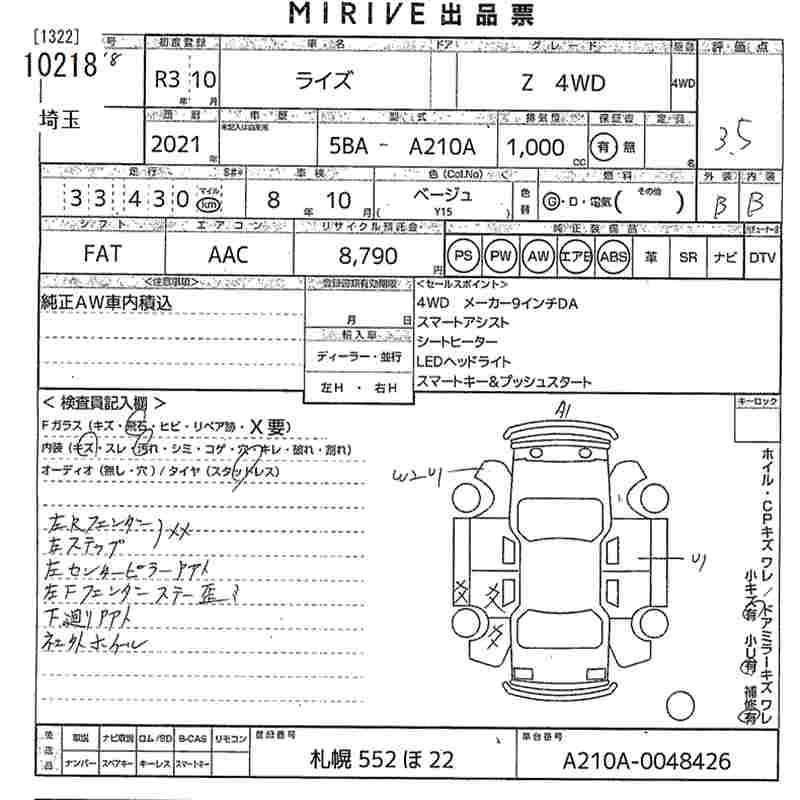 MIRIVE 出品票
[1322] 号 初度登録 車名 ドア グレード 評価点
10218 R3 10 年 月 ライズ Z 4WD 4WD
埼玉 車歴 型式 排気量 保証書 定員
2021 年 5BA - A210A 1,000 CC 有 無 名 3.5
走行 車検 色(Col.No) 燃料 外装 内装
33430 マイル km 8 年 10 月 ベージュ Y15 色替 G・D・電気( その他 ) B B
シフト エアコン リサイクル預託金 純正装備品
FAT AAC 8,790 円 PS PW AW エアB ABS 革 SR ナビ DTV
<注意事項> <セールスポイント>
純正AW車内積込 4WD メーカー9インチDA
月 日 スマートアシスト
輸入車 シートヒーター
ディーラー・並行 LEDヘッドライト
左H ・ 右H スマートキー&プッシュスタート
< 検査員記入欄 > キーロック
Fガラス (キズ・飛石・ヒビ・リペア跡・X要)
内装 (キズ・スレ・汚れ・シミ・コゲ・穴・キレ・破れ・割れ)
オーディオ (無し・穴) / タイヤ (スタッドレス)
A1
W2U1
U1
左Rフェンダー
左ステップ XX
左センターピラーアト
左Fフェンダーステー歪ミ
下廻りアト
ホイル・CPキズ ワレ / ドアミラーキズ ワレ
小キズ有 小U有 補修有
後送品 取説 ナビ取説 ロム/SD B-CAS リモコン 登録番号 車台番号
ナンバー スペアキー キーレス スマートキー 札幌 552 ほ 22 A210A-0048426